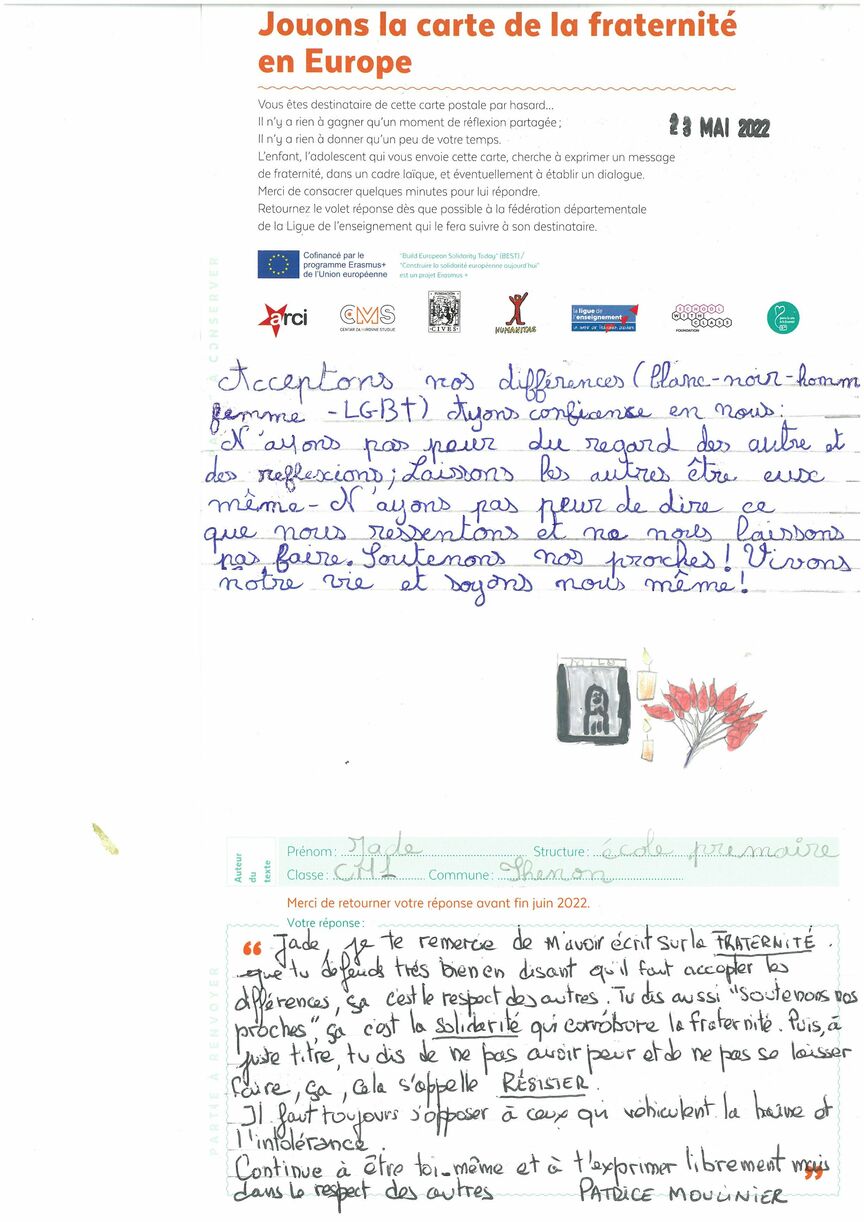 Jouons la carte de la fraternité
en Europe
Vous êtes destinataire de cette carte postale par hasard...
Il n'y a rien à gagner qu'un moment de réflexion partagée ;
Il n'y a rien à donner qu'un peu de votre temps.
23 MAI 2022
L'enfant, l'adolescent qui vous envoie cette carte, cherche à exprimer un message
de fraternité, dans un cadre laïque, et éventuellement à établir un dialogue.
Merci de consacrer quelques minutes pour lui répondre.
Retournez le volet réponse dès que possible à la fédération départementale
de la Ligue de l'enseignement qui le fera suivre à son destinataire.
À CONSERVER
Cofinancé par le
programme Erasmus+
de l'Union européenne
"Build European Solidarity Today" (BEST) /
"Construire la solidarité européenne aujourd'hui"
est un projet Erasmus +
arci
CMS
FUNDACIÓN
CIVES
HUMANITAS
la ligue de
l'enseignement
SCHOOL
WITH
CLASS
FOUNDATION
Acceptons nos différences (blanc-noir-homm
femme - LGBT) Ayons confiance en nous:
N'ayons pas peur du regard des autre et
des reflexions; Laissons les autres être eux
même - N'ayons pas peur de dire ce
que nous ressentons et ne nous laissons
pas faire. Soutenons nos proches! Vivons
notre vie et soyons nous même!
Auteur
du
texte
Prénom : Jade Structure : école primaire
Classe : CM1 Commune : Thenon
Merci de retourner votre réponse avant fin juin 2022.
Votre réponse :
PARTIE À RENVOYER
“ Jade, je te remercie de m'avoir écrit sur la FRATERNITÉ.
que tu défends très bien en disant qu'il faut accepter les
différences, ça c'est le respect des autres. Tu dis aussi "soutenons nos
proches", ça c'est la solidarité qui corrobore la fraternité. Puis, à
juste titre, tu dis de ne pas avoir peur et de ne pas se laisser
faire, ça, cela s'appelle RÉSISTER.
Il faut toujours s'opposer à ceux qui véhiculent la haine et
l'intolérance.
Continue à être toi-même et à t'exprimer librement mais ”
dans le respect des autres PATRICE MOULINIER